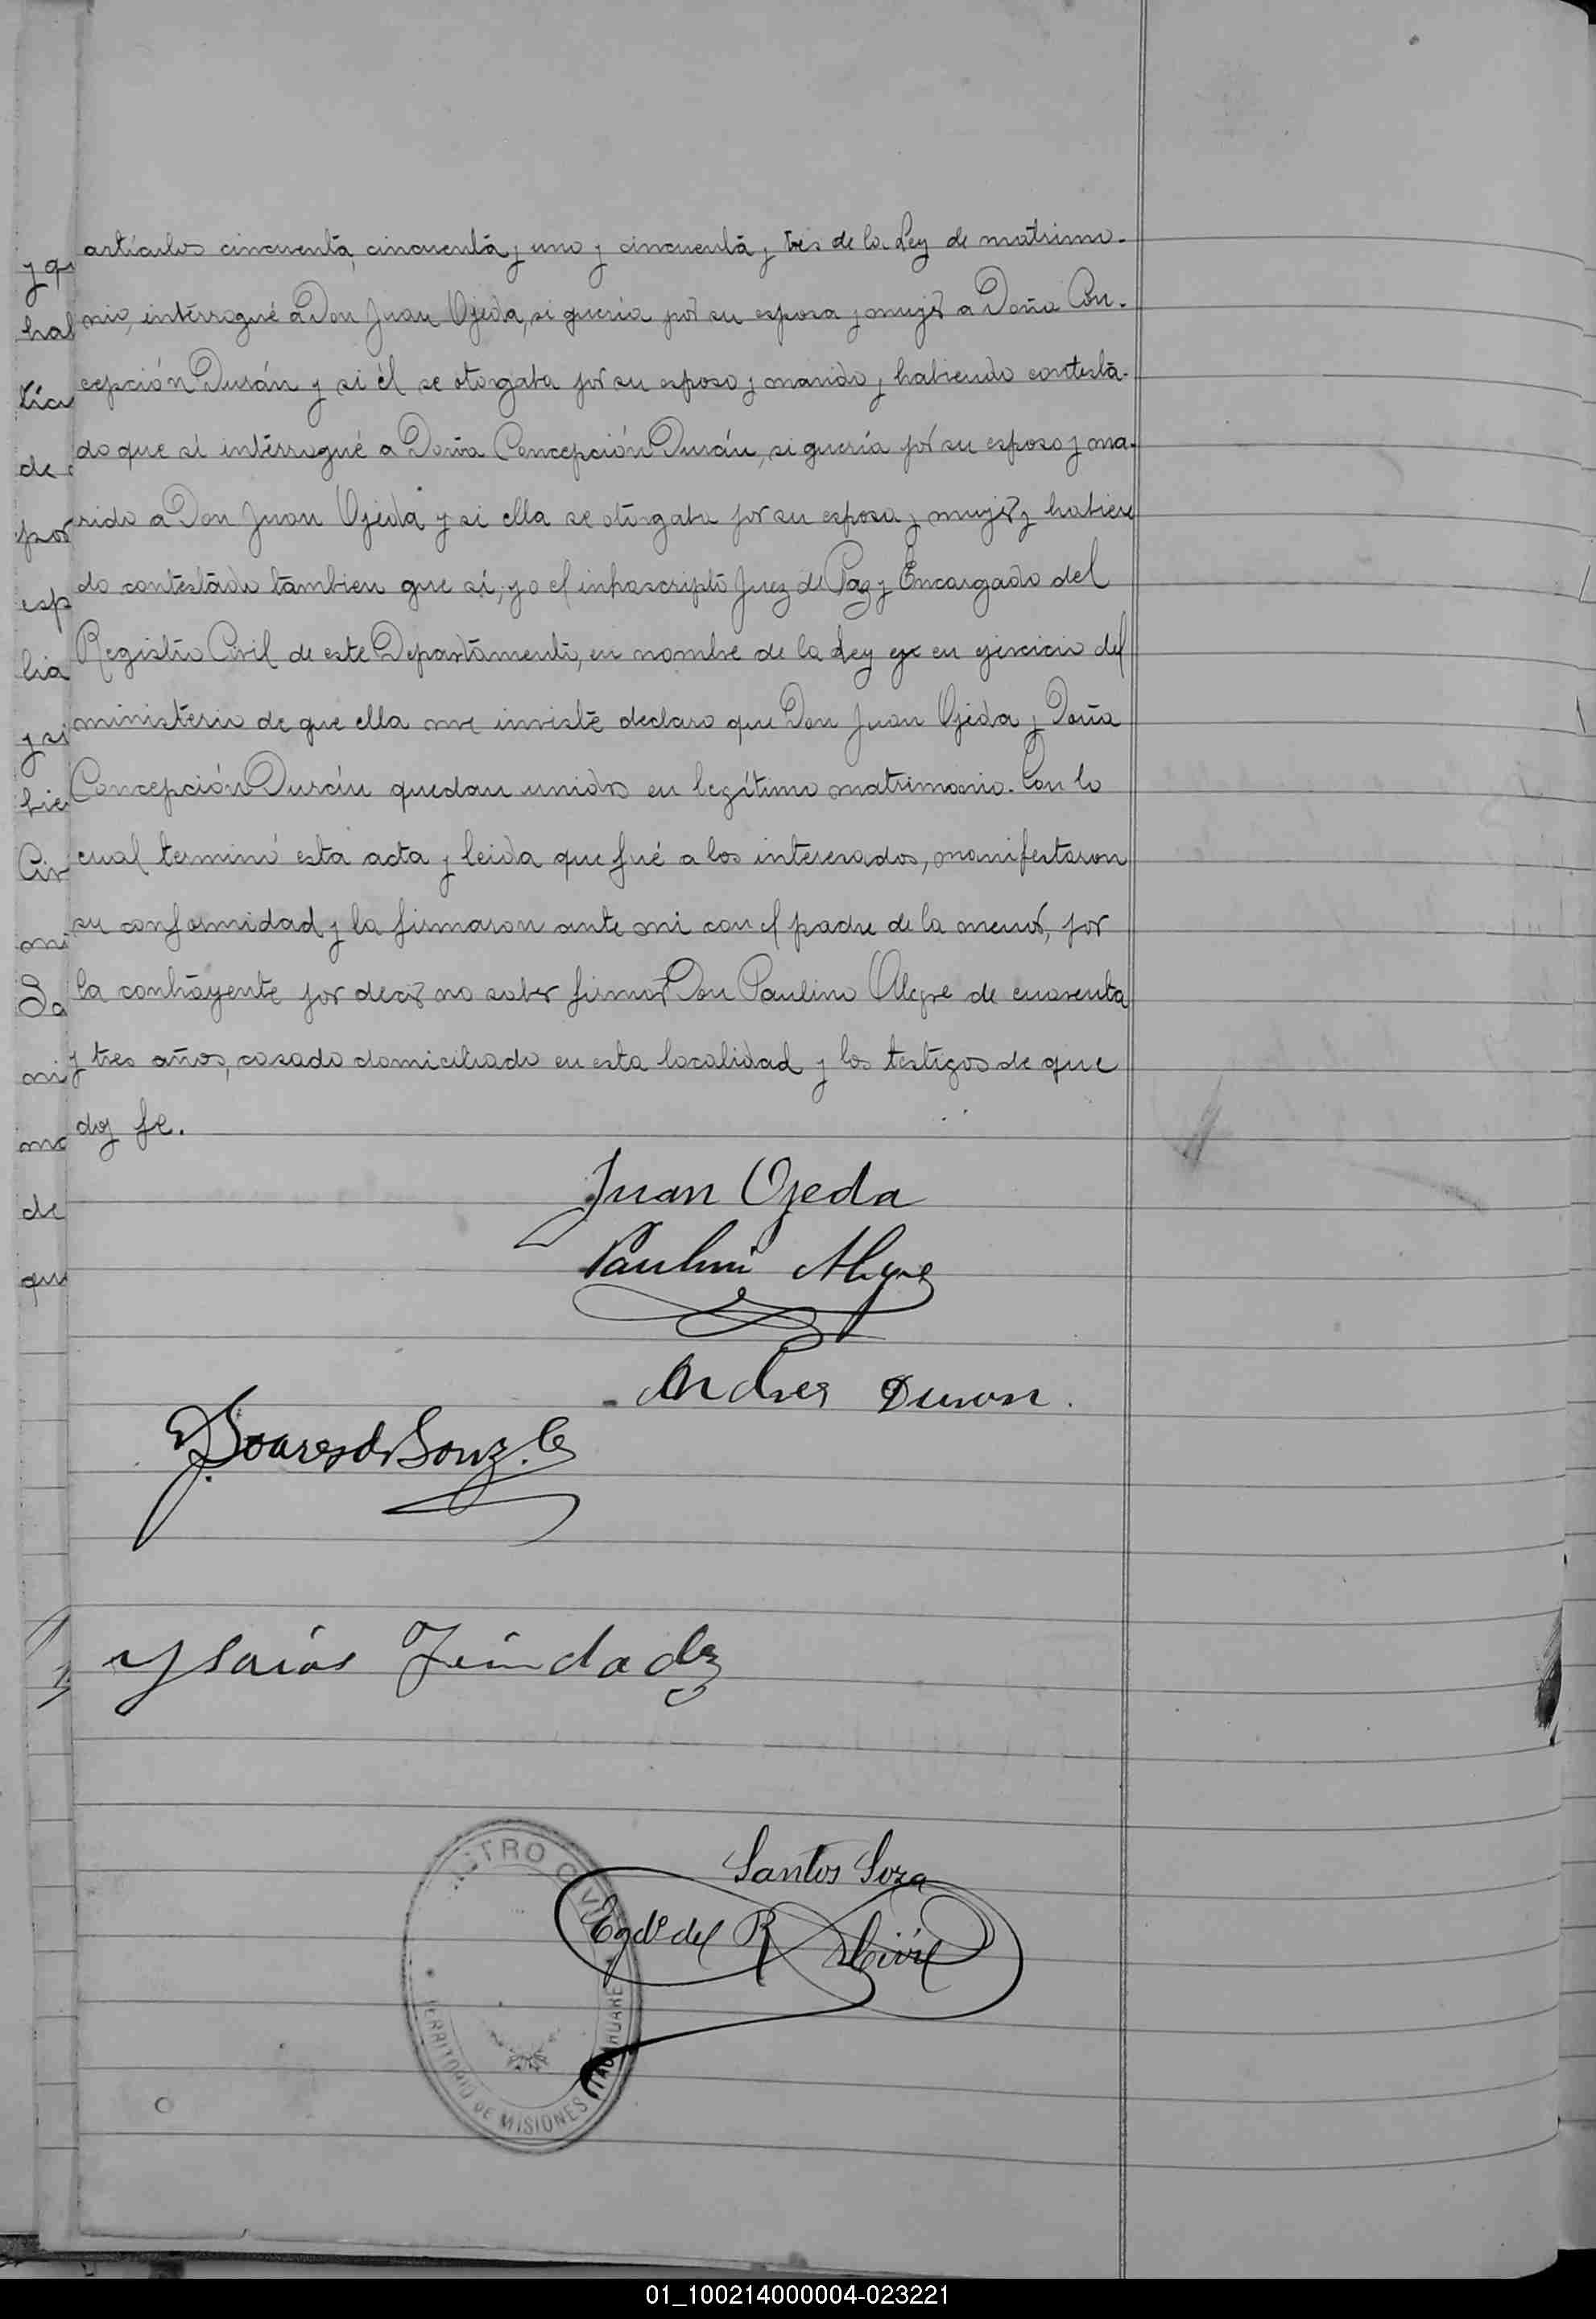 artículos cincuenta, cincuenta y uno y cincuenta y tres de la Ley de matrimo-
nio, interrogué a Don Juan Ojeda, si quería por su esposa y mujer a Doña Con-
cepción Durán y si él se otorgaba por su esposo y marido y habiendo contesta-
do que sí interrogué a Doña Concepción Durán, si quería por su esposo y ma-
rido a Don Juan Ojeda y si ella se otorgaba por su esposa y mujer y habien
do contestado tambien que sí, yo el infrascripto Juez de Paz y Encargado del
Registro Civil de este Departamento, en nombre de la Ley y en ejercicio del
ministerio de que ella me inviste declaro que Don Juan Ojeda y Doña
Concepción Durán quedan unidos en legítimo matrimonio. Con lo
cual terminó esta acta y leida que fué a los interesados, manifestaron
su conformidad y la firmaron ante mi con el padre de la menor, por
la contrayente por decir no saber firmar Don Paulino Alegre de cuarenta
y tres años, casado domiciliado en esta localidad y los testigos de que
doy fe.
Juan Ojeda
Paulino Alegre
Andres Duran.
Ysaias
Santos Soza
Egdo del R Civil
STRO CIVIL
TERRITORIO DE MISIONES
y qu
hab
tícu
de
por
esp
lia
y si
bie
Cir
mi
mo
de
que
01_100214000004-023221